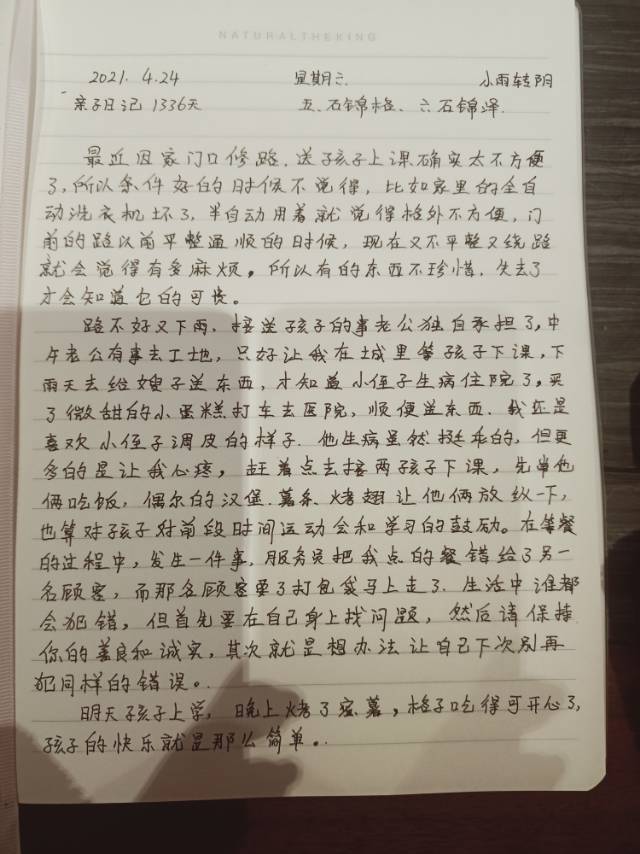 NATURALTHEKING
2021. 4.24 星期六 小雨转阴
亲子日记 1336天 五、石锦格、六石锦泽
最近因家门口修路.送孩子上课确实太不方便
了,所以条件好的时候不觉得,比如家里的全自
动洗衣机坏了,半自动用着就觉得格外不方便,门
前的路以前平整通顺的时候,现在又不平整又绕路
就会觉得有多麻烦。所以有的东西不珍惜.失去了
才会知道它的可贵。
路不好又下雨,接送孩子的事老公独自承担了,中
午老公有事去工地,只好让我在城里等孩子下课,下
雨天去给嫂子送东西,才知道小侄子生病住院了,买
了微甜的小蛋糕打车去医院,顺便送东西.我还是
喜欢小侄子调皮的样子.他生病虽然挺乖的,但更
多的是让我心疼,赶着点去接两孩子下课,先带他
俩吃饭,偶尔的汉堡.薯条.烤翅让他俩放纵一下,
也算对孩子对前段时间运动会和学习的鼓励。在等餐
的过程中,发生一件事,服务员把我点的餐错给了另一
名顾客,而那名顾客要了打包袋马上走了.生活中谁都
会犯错,但首先要在自己身上找问题,然后请保持
你的善良和诚实,其次就是想办法让自己下次别再
犯同样的错误。
明天孩子上学,晚上烤了蜜薯,格子吃得可开心了,
孩子的快乐就是那么简单。